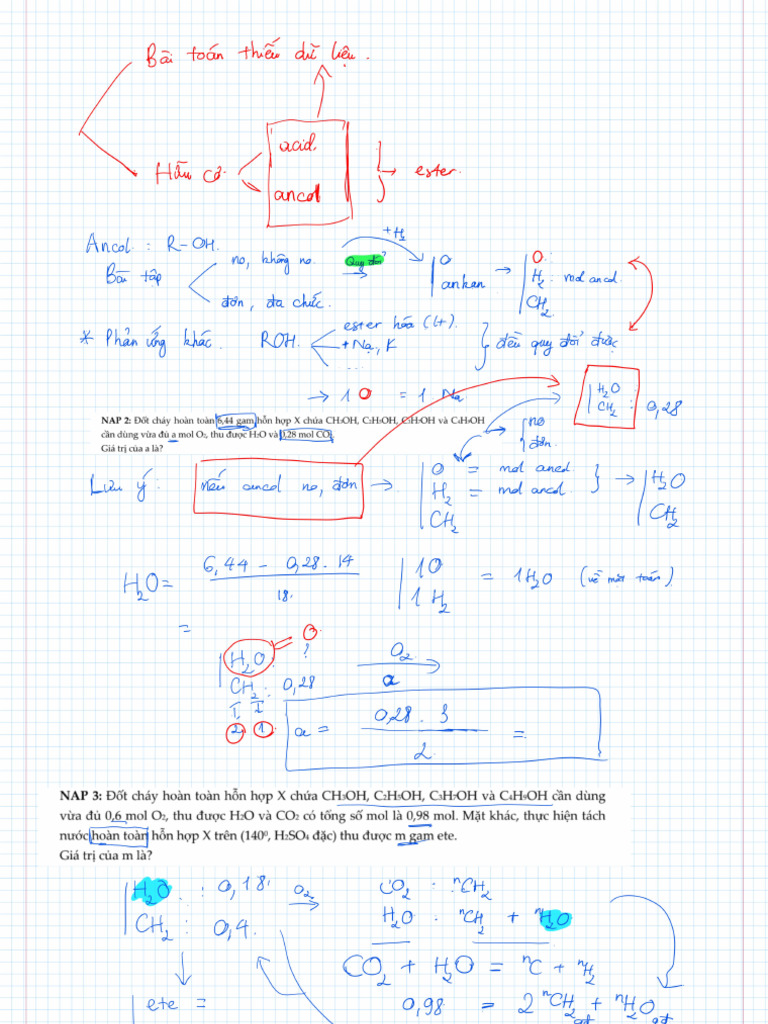 Bài toán thiếu dữ liệu.
Hữu cơ. acid. ancol → ester.
Ancol : R-OH. + H₂
Bài tập no, không no. Quy đổi → O ankan → O : H₂ : mol ancol. CH₂
đơn, đa chức.
* Phản ứng khác. ROH. ester hóa (Lt). +Na, K ... } đều quy đổi được
→ 1 O = 1 Na
H₂O CH₂ : 0,28
NAP 2: Đốt cháy hoàn toàn 6,44 gam hỗn hợp X chứa CH₃OH, C₂H₅OH, C₃H₇OH và C₄H₉OH
cần dùng vừa đủ a mol O₂, thu được H₂O và 0,28 mol CO₂.
Giá trị của a là?
no đơn.
Lưu ý : nếu ancol no, đơn → O = mol ancol H₂ = mol ancol. CH₂ } → H₂O CH₂
H₂O = 6,44 - 0,28 . 14 / 18. 1O 1H₂ = 1H₂O (về mặt toán)
=
H₂O : ? = O. O₂ →
CH₂ : 0,28 a
I, I
2 1 a = 0,28 . 3 / 2. =
NAP 3: Đốt cháy hoàn toàn hỗn hợp X chứa CH₃OH, C₂H₅OH, C₃H₇OH và C₄H₉OH cần dùng
vừa đủ 0,6 mol O₂, thu được H₂O và CO₂ có tổng số mol là 0,98 mol. Mặt khác, thực hiện tách
nước hoàn toàn hỗn hợp X trên (140⁰, H₂SO₄ đặc) thu được m gam ete.
Giá trị của m là?
H₂O : 0,18 O₂ → CO₂ : nCH₂
CH₂ : 0,4. H₂O : nCH₂ + nH₂O
CO₂ + H₂O = nC + nH₂
ete = 0,98 = 2 nCH₂ + nH₂O